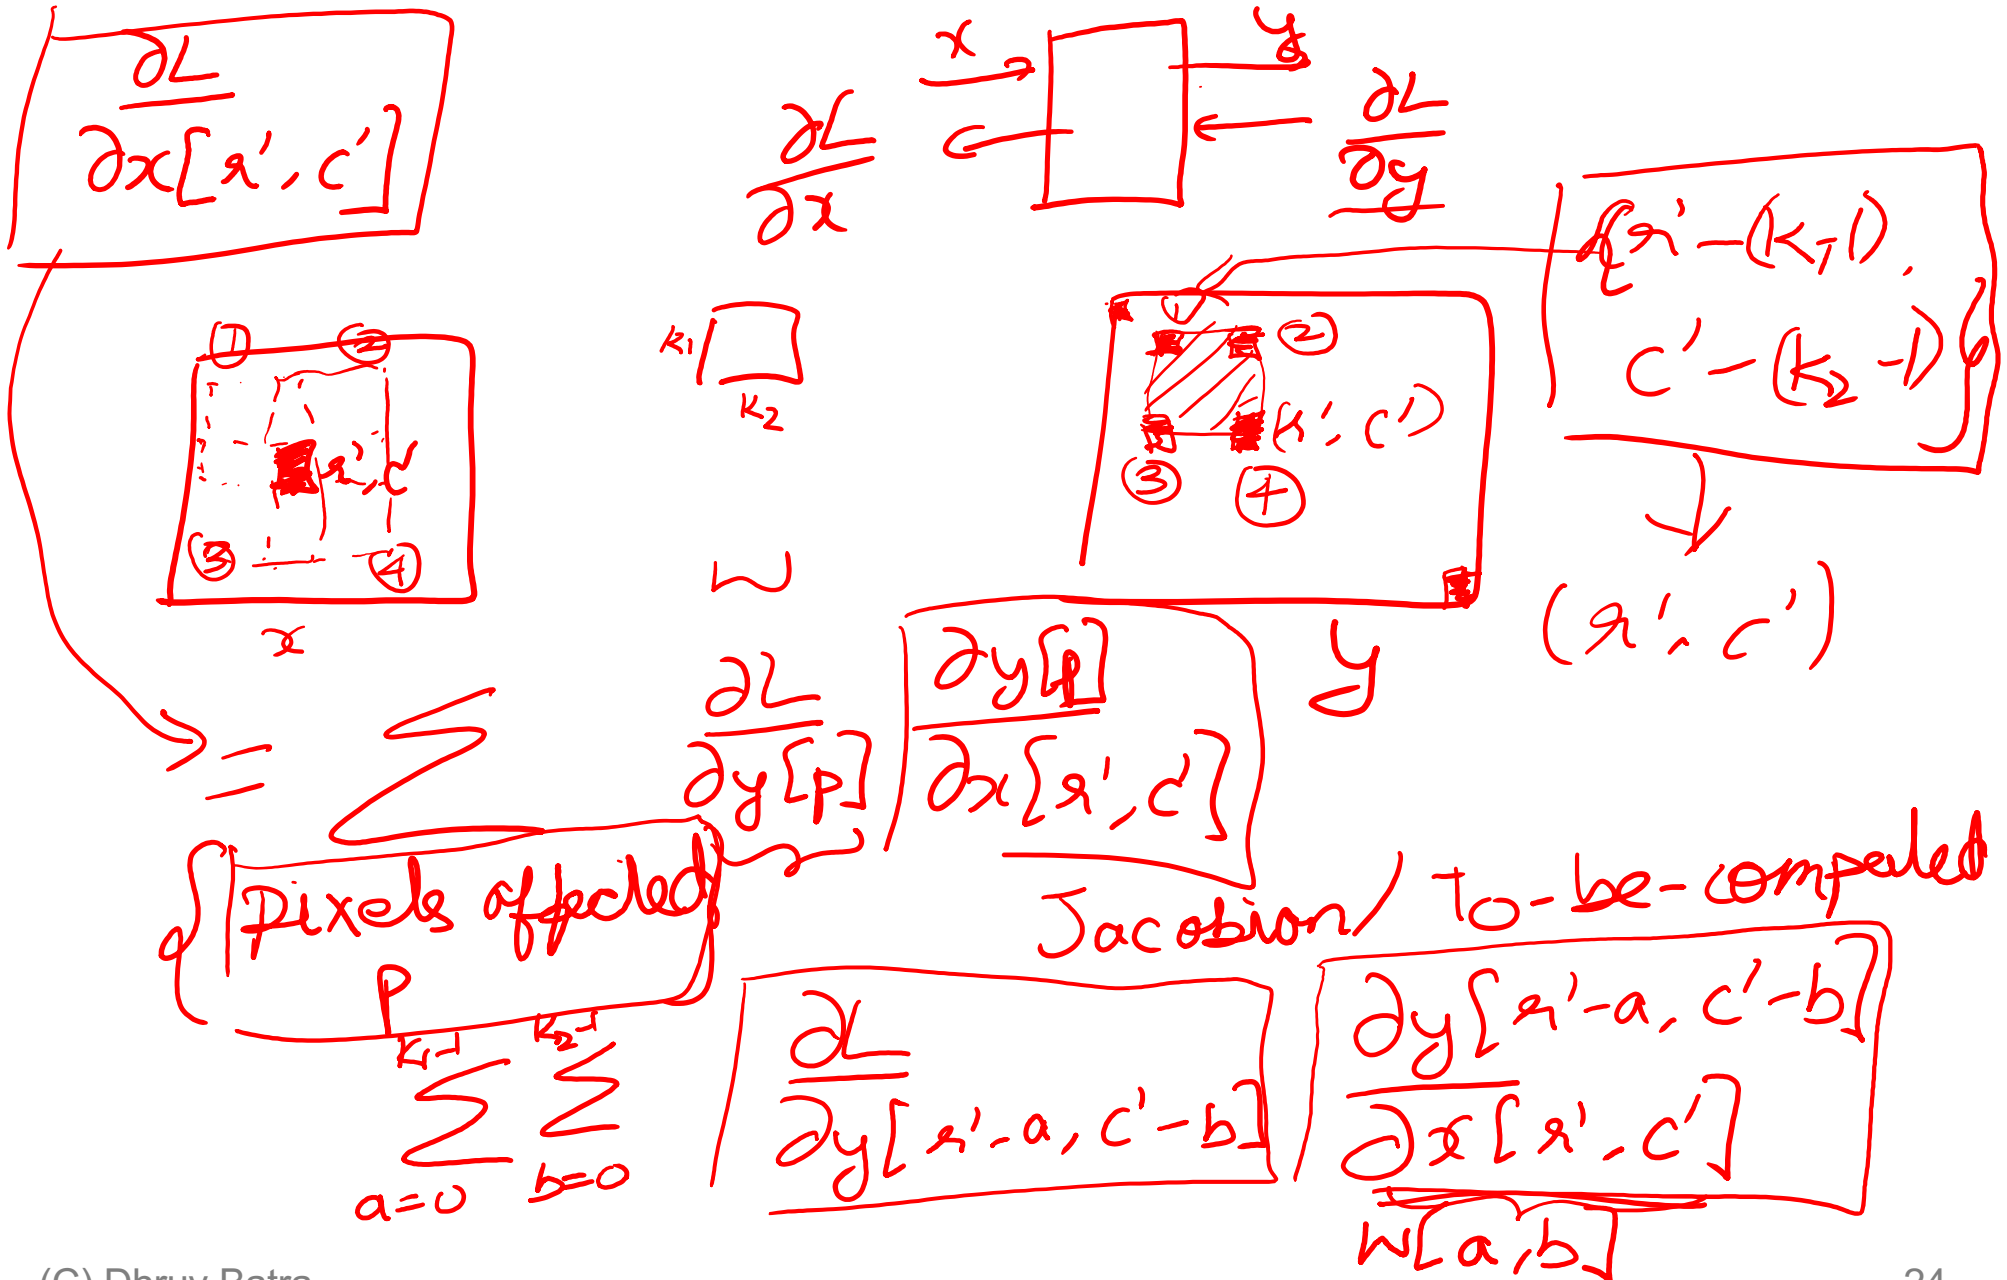 ∂L
∂x[r', c']
x
y
∂L
∂x
∂L
∂y
(r'-(k₁-1),
c'-(k₂-1))
↓
(r', c')
① ②
r', c'
③ ④
x
k₁
k₂
w
① ②
(r', c')
③ ④
y
= Σ ∂L/∂y[p] ∂y[p]/∂x[r', c']
pixels affected
p
Jacobian / to-be-computed
k₁-1 k₂-1
Σ Σ ∂L/∂y[r'-a, c'-b] ∂y[r'-a, c'-b]/∂x[r', c']
a=0 b=0
w[a,b]
(C) Dhruv Batra
24